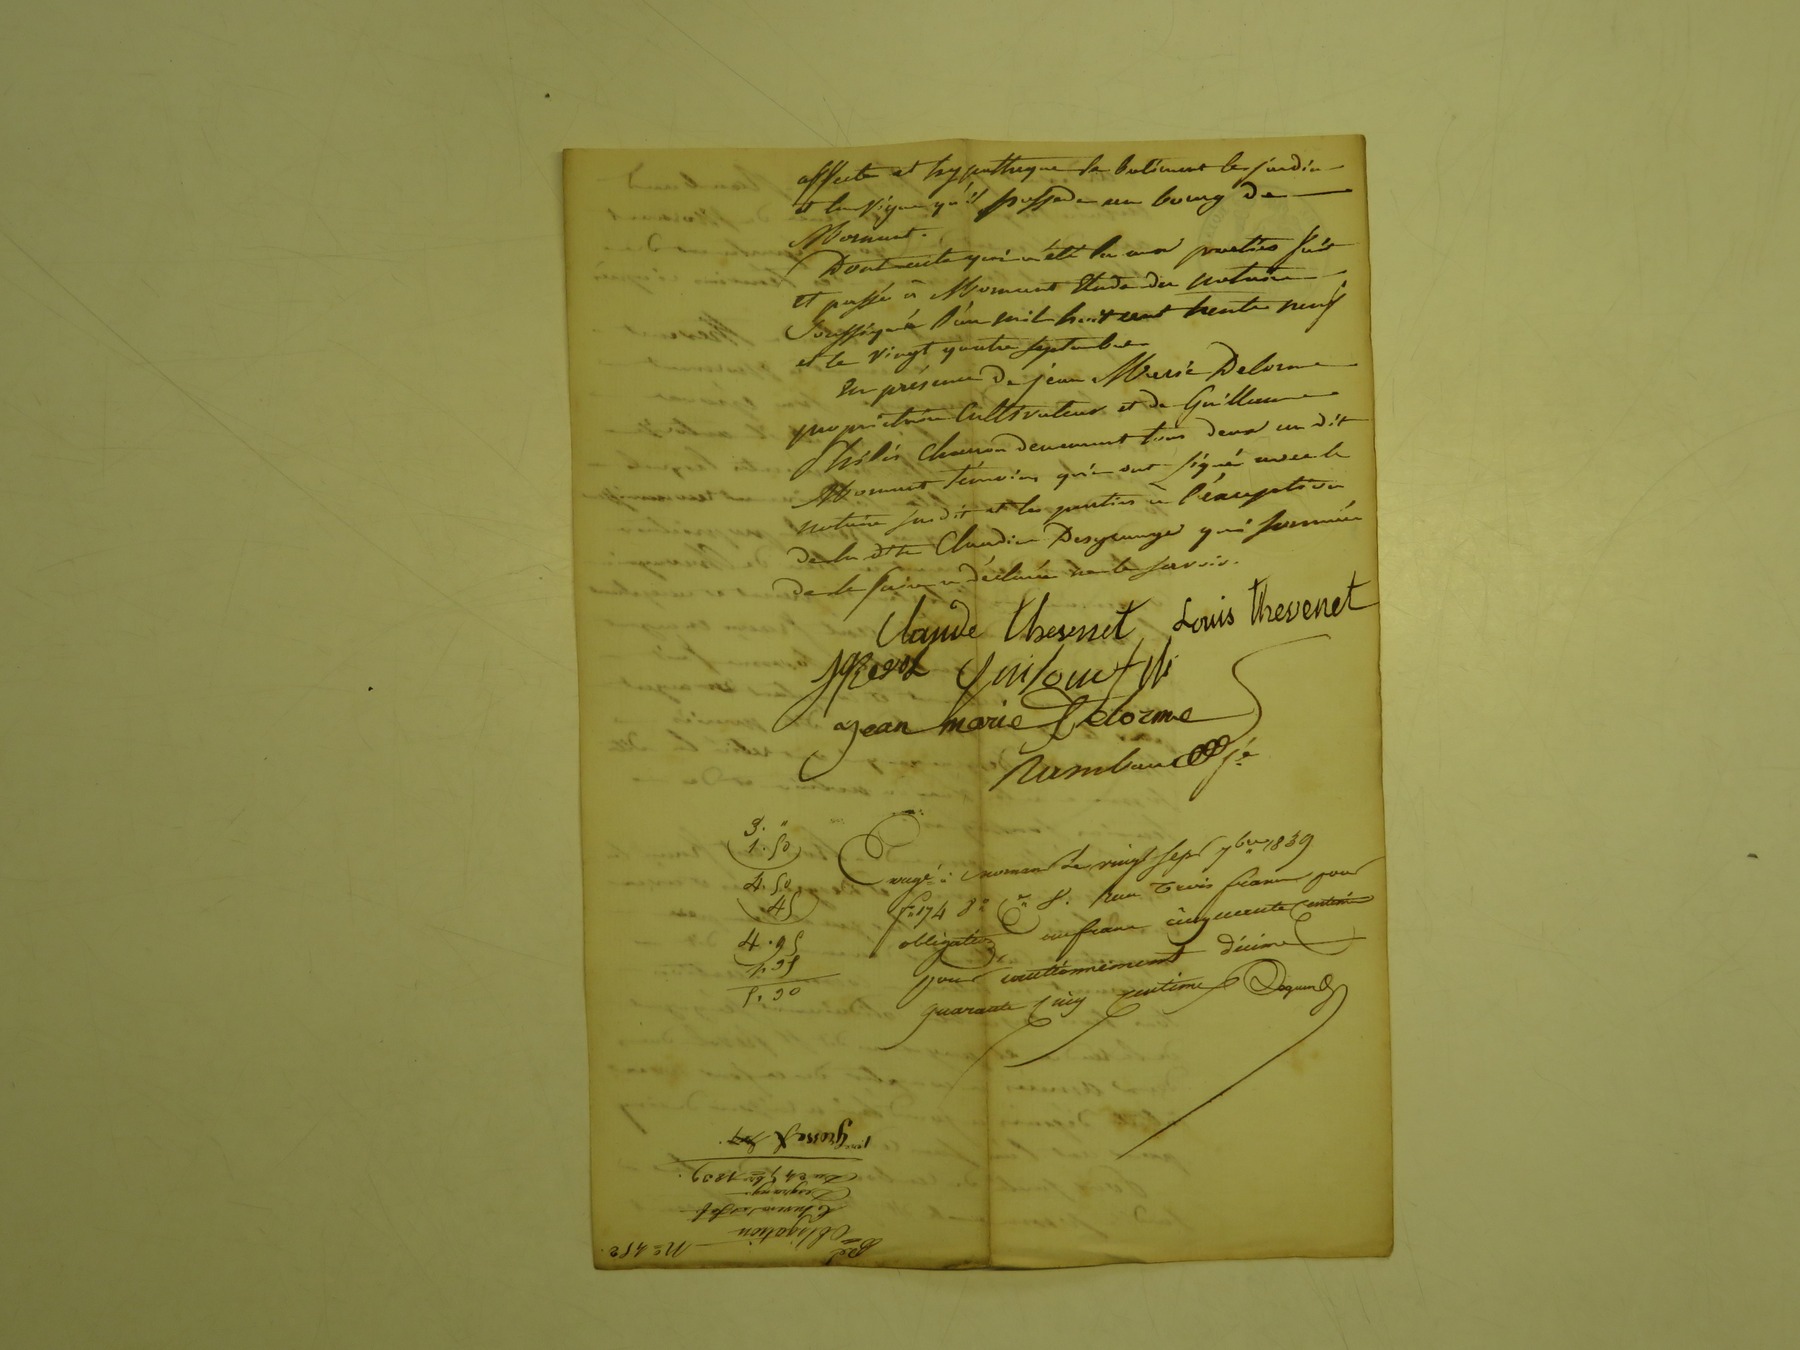 affecte et hypothèque le bâtiment le jardin
et la vigne qu'il possède au bourg de
Mornant.
Dont acte qui a été lu aux parties fait
et passé à Mornant Etude du notaire
Soussigné l'an mil huit cent trente neuf
et le vingt quatre septembre
En présence de jean Marie Delorme
propriétaire Cultivateur et de Guillaume
charron demeurant tous deux au dit
Mornant témoins qui ont signé avec le
notaire susdit et les parties à l'éxception
de la dite Claudine Desgranges qui sommée
de le faire a déclaré ne le savoir.
Claude thevenet Louis thevenet
jean marie Delorme
3. "
1. 50
4. 50
45
4. 95
1. 95
5. 90
Enregé à mornant Le vingt sept 7bre 1839
fo 174 Ro Ce 8. Reçu trois francs pour
obligation, un franc cinquante centimes
pour cautionnement décime
quarante cinq centimes
No 452
Obligation
Desgranges
Du 24 7bre 1839.
1ere Grosse